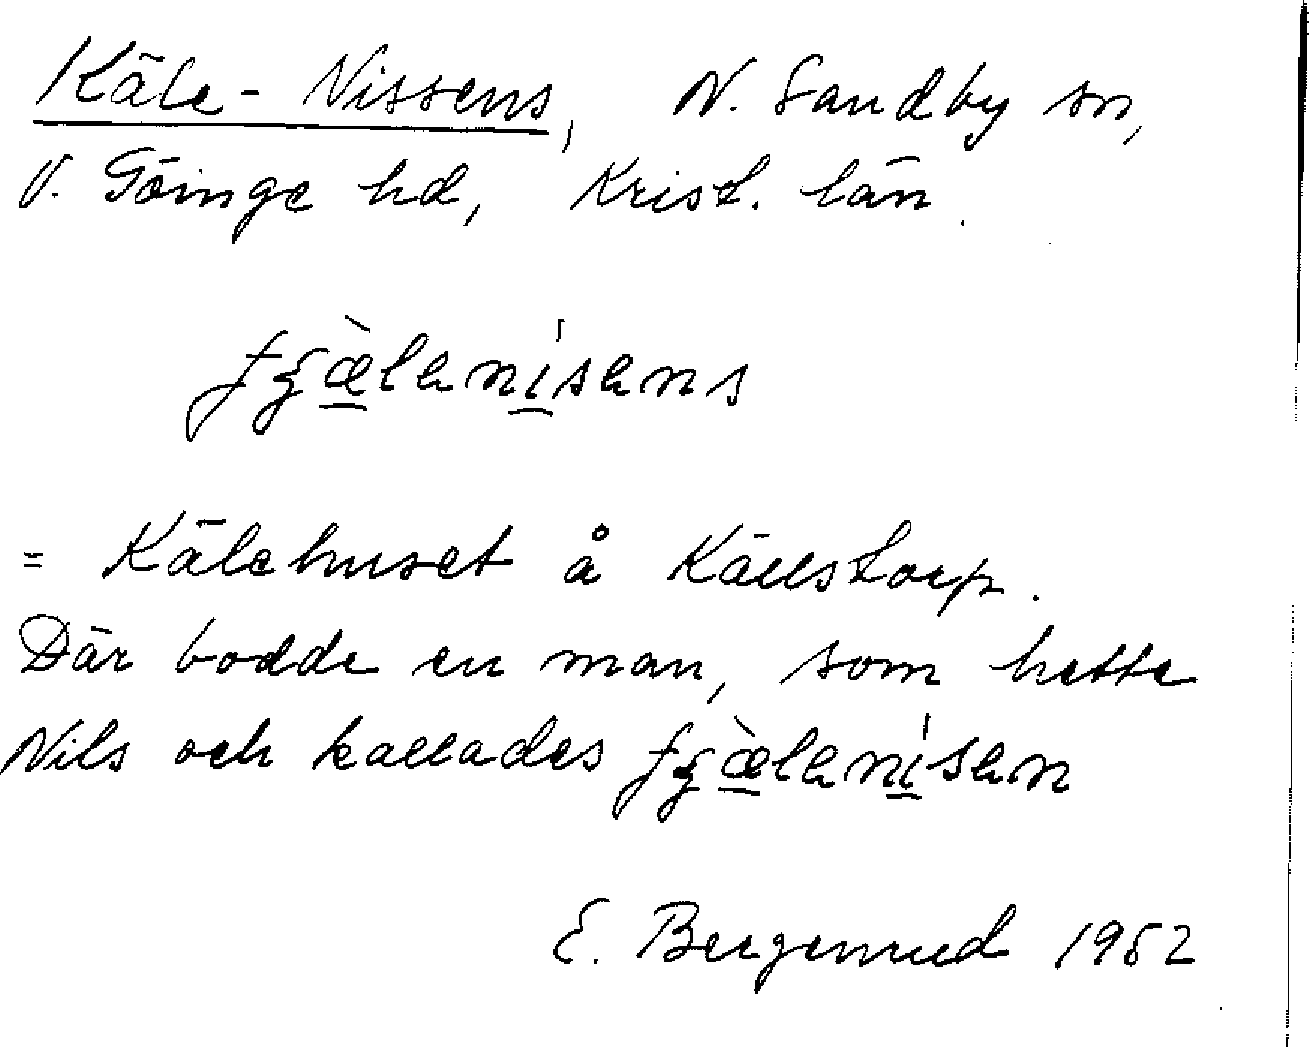 Käle-Nissens, N. Sandby sn,
V. Göinge hd, Krist. län.
= Kälehuset å Källstorp.
Där bodde en man, som hette
Nils och kallades
E. Bergenrud 1952